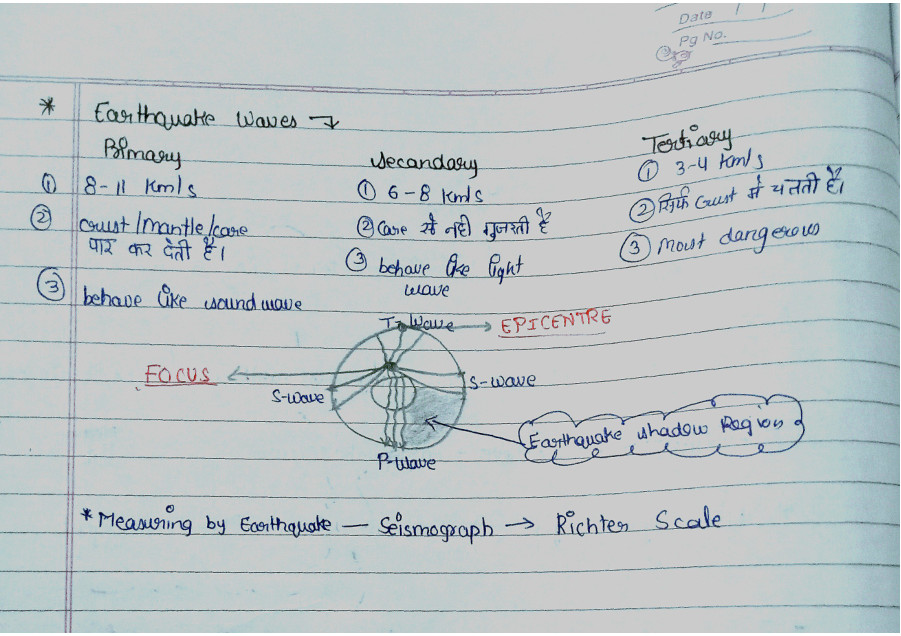 Date
Pg No.
* Earthquake waves →
Primary
① 8-11 Km/s
② crust/mantle/core
पार कर देती है।
③ behave like sound wave
secandary
① 6-8 Km/s
② Core से नही गुजरती है
③ behave like light
wave
Tertiary
① 3-4 Km/s
② सिर्फ Crust में चलती है।
③ Most dangerous
T-Wave → EPICENTRE
FOCUS
S-wave
S-wave
Earthquake shadow Region
P-Wave
* Measuring by Earthquake — Seismograph → Richter Scale